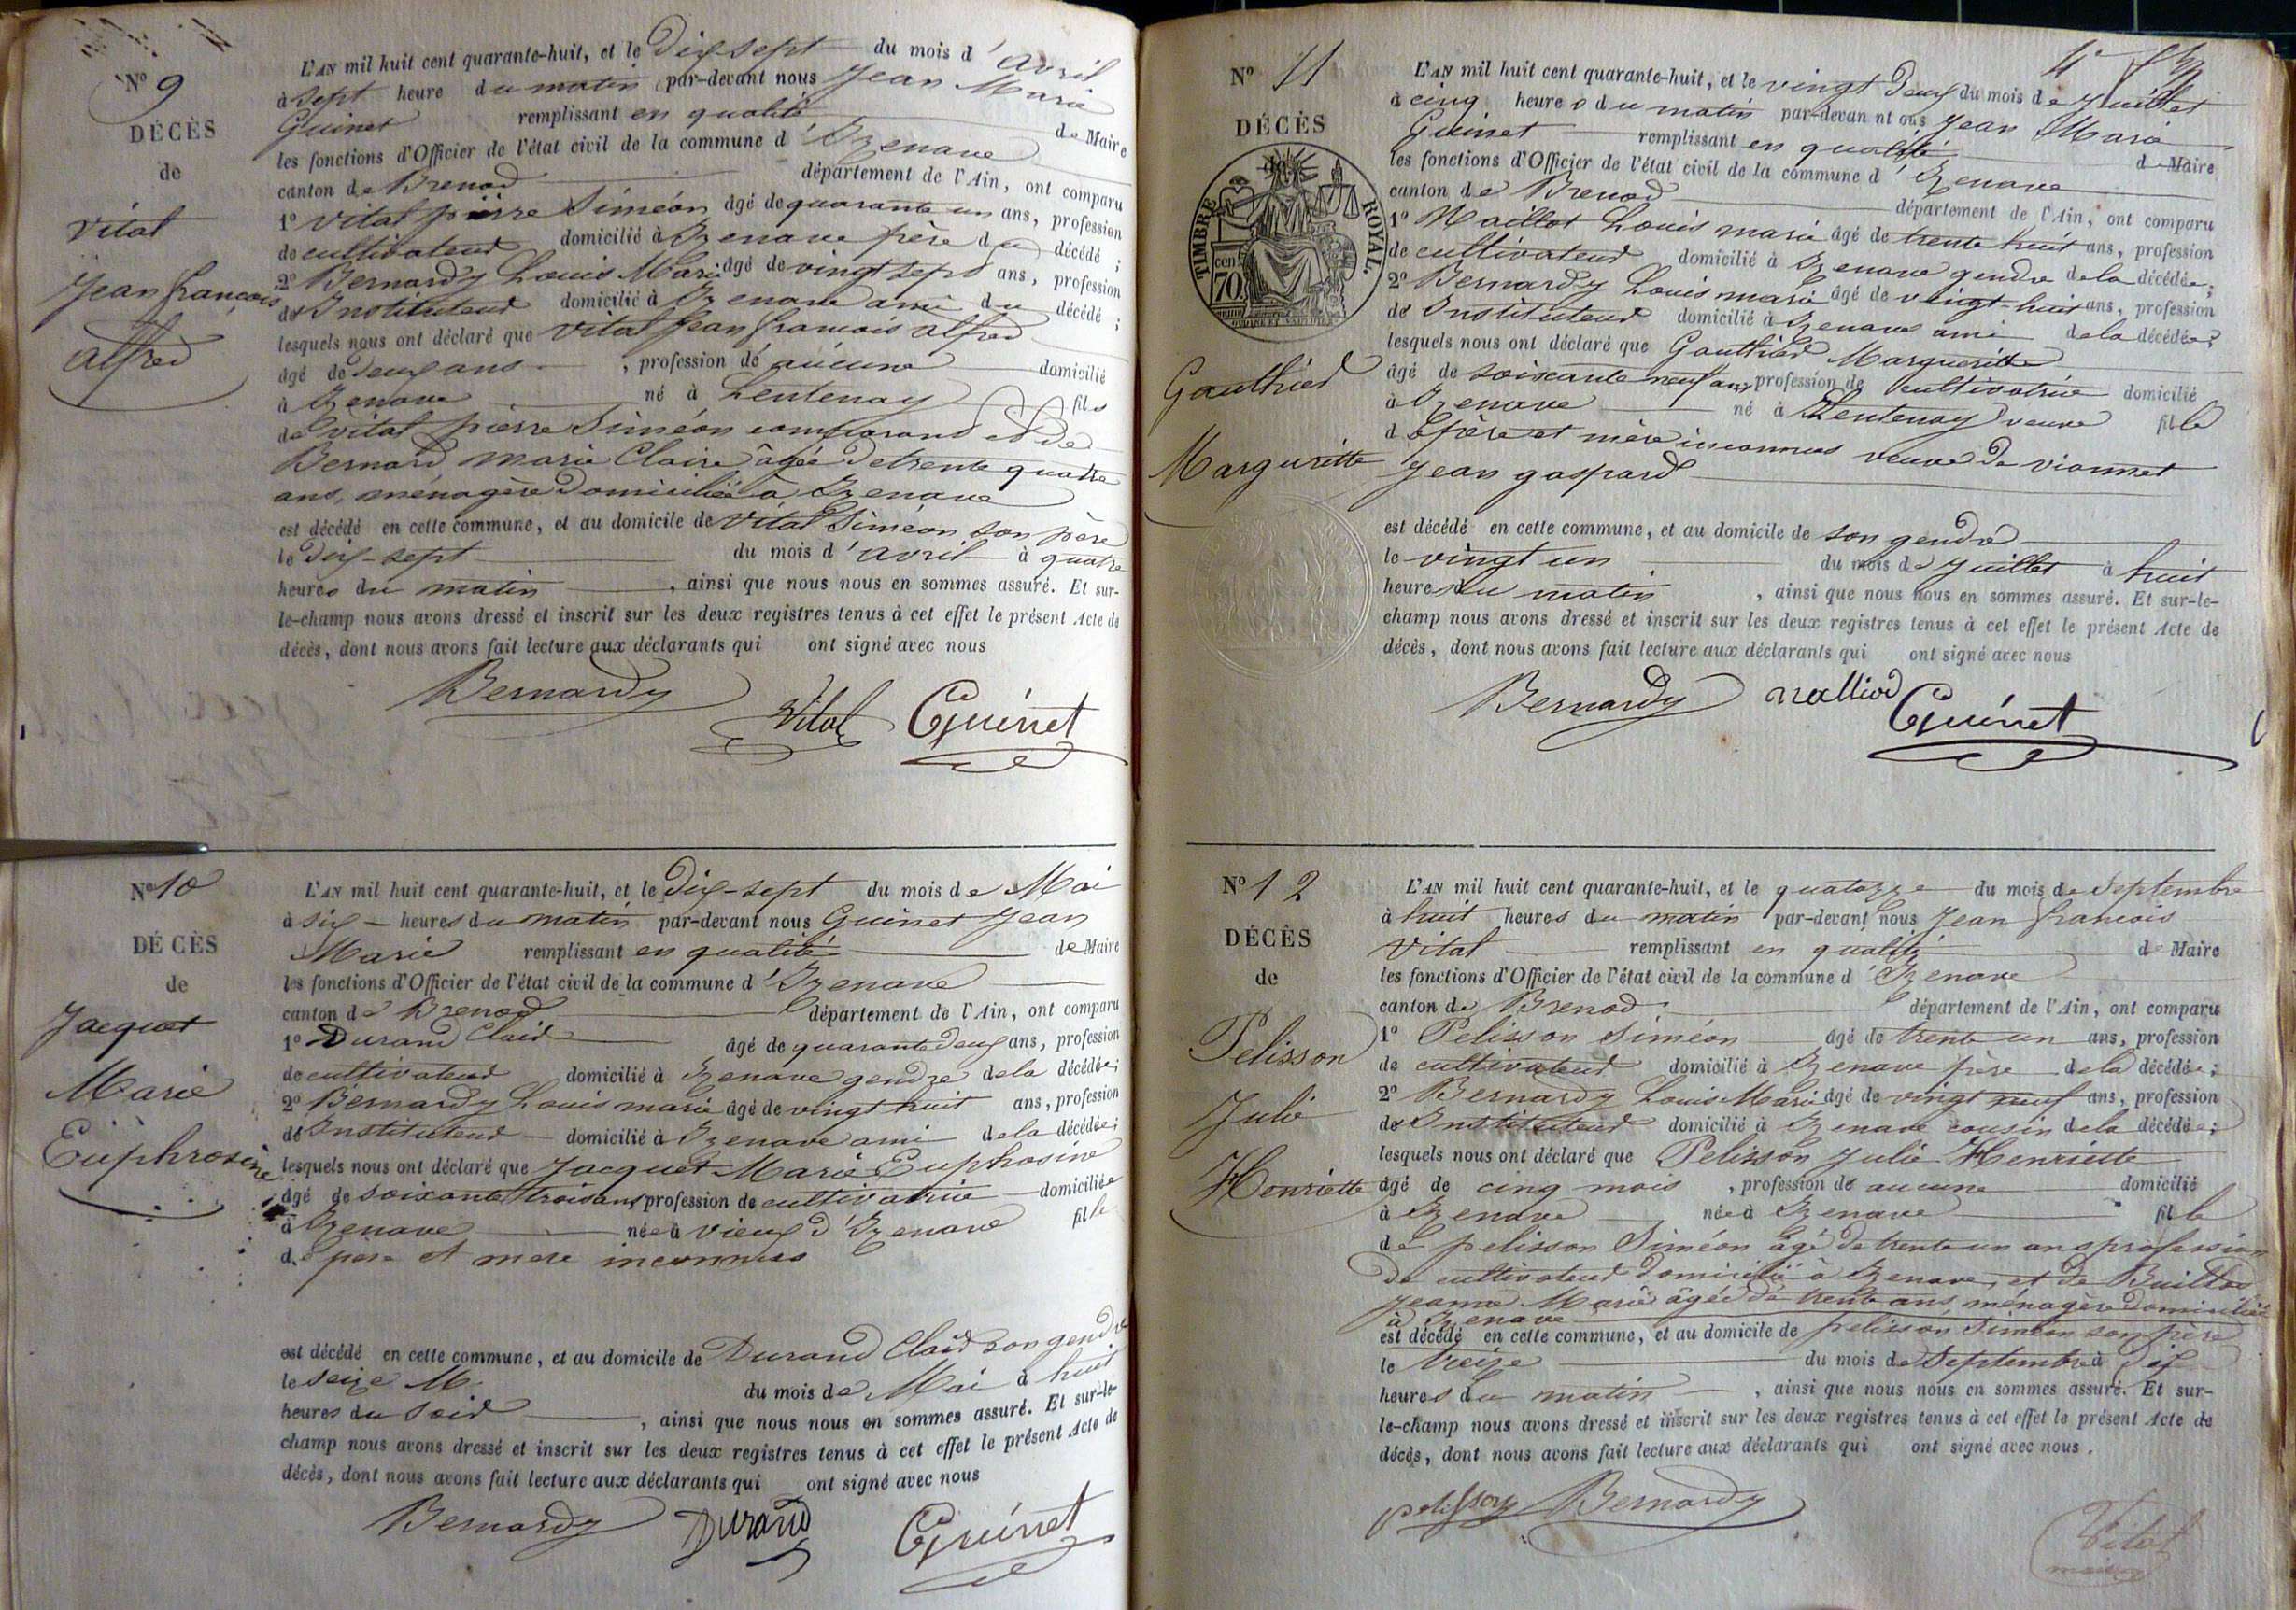 N° 9
DÉCÈS
de
Vital
Jean françois
alfred
L'AN mil huit cent quarante-huit, et le Dix sept du mois d'avril
à sept heure du matin par-devant nous Jean Marie
Guinet remplissant en qualité de Maire
les fonctions d'Officier de l'état civil de la commune d'Izenave
canton de Brenod département de l'Ain, ont comparu
1° Vital pierre Siméon âgé de quarante un ans, profession
de cultivateur domicilié à Izenave père du décédé ;
2° Bernardy Louis Marie âgé de vingt sept ans, profession
de Instituteur domicilié à Izenave ami du décédé ;
lesquels nous ont déclaré que Vital Jean francois alfred
âgé de Deux ans , profession de aucune domicilié
à Izenave né à Lentenay fils
de Vital pierre Siméon comparant et de
Bernard marie Claire âgée de trente quatre
ans, ménagère domiciliée à Izenave
est décédé en cette commune, et au domicile de Vital Siméon son père
le Dix-sept du mois d'avril à quatre
heures du matin , ainsi que nous nous en sommes assuré. Et sur-
le-champ nous avons dressé et inscrit sur les deux registres tenus à cet effet le présent Acte de
décès, dont nous avons fait lecture aux déclarants qui ont signé avec nous
Bernardy Vital Guinet
N° 10
DÉCÈS
de
Jacquet
Marie
Euphrosine
L'AN mil huit cent quarante-huit, et le Dix-sept du mois de Mai
à six heures du matin par-devant nous Guinet Jean
Marie remplissant en qualité de Maire
les fonctions d'Officier de l'état civil de la commune d'Izenave
canton de Brenod département de l'Ain, ont comparu
1° Durand Claid âgé de quarante Deux ans, profession
de cultivateur domicilié à Izenave gendre de la décédée ;
2° Bernardy Louis marie âgé de vingt huit ans, profession
de Instituteur domicilié à Izenave ami de la décédée ;
lesquels nous ont déclaré que Jacquet Marie Euphosine
âgé de soixante trois ans profession de cultivatrice domiciliée
à Izenave née à vieux d'Izenave fille
de père et mere inconnus
est décédé en cette commune, et au domicile de Durand Claid son gendre
le seize M. du mois de Mai à huit
heures du soir , ainsi que nous nous en sommes assuré. Et sur-le-
champ nous avons dressé et inscrit sur les deux registres tenus à cet effet le présent Acte de
décès, dont nous avons fait lecture aux déclarants qui ont signé avec nous
Bernardy Durand Guinet
N° 11
DÉCÈS
de
TIMBRE ROYAL
cen
70
Gauthier
Marguritte
L'AN mil huit cent quarante-huit, et le vingt Deux du mois de Juillet
à cinq heures du matin par-devan nt ous Jean Marie
Guinet remplissant en qualité de Maire
les fonctions d'Officier de l'état civil de la commune d'Izenave
canton de Brenod département de l'Ain, ont comparu
1° Naillot Louis marie âgé de trente huit ans, profession
de cultivateur domicilié à Izenave gendre de la décédée ;
2° Bernardy Louis marie âgé de vingt-huit ans, profession
de Instituteur domicilié à Izenave ami de la décédée ;
lesquels nous ont déclaré que Gauthier Margueritte
âgé de soixante neuf ans profession de cultivatrice domicilié
à Izenave né à Lentenay veuve fille
de père et mère inconnus veuve de vionnet
Jean gaspard
est décédé en cette commune, et au domicile de son gendre
le vingt un du mois de Juillet à huit
heures du matin , ainsi que nous nous en sommes assuré. Et sur-le-
champ nous avons dressé et inscrit sur les deux registres tenus à cet effet le présent Acte de
décès, dont nous avons fait lecture aux déclarants qui ont signé avec nous
Bernardy nalliod Guinet
N° 12
DÉCÈS
de
Pelisson
Julie
Henriette
L'AN mil huit cent quarante-huit, et le quatozze du mois de Septembre
à huit heures du matin par-devant nous Jean francois
Vital remplissant en qualité de Maire
les fonctions d'Officier de l'état civil de la commune d'Izenave
canton de Brenod département de l'Ain, ont comparu
1° Pelisson Siméon âgé de trente un ans, profession
de cultivateur domicilié à Izenave père de la décédée ;
2° Bernardy Louis Marie âgé de vingt neuf ans, profession
de Instituteur domicilié à Izenave cousin de la décédée ;
lesquels nous ont déclaré que Pelisson Julie Henriette
âgé de cinq mois , profession de aucune domicilié
à Izenave née à Izenave fille
de pelisson Siméon âgé de trente un ans profession
de cultivateur domicilié à Izenave, et de
Jeanne Marie âgée de trente ans, ménagère domiciliée
à Izenave
est décédé en cette commune, et au domicile de pelisson Siméon son père
le treize du mois de Septembre à Dix
heures du matin , ainsi que nous nous en sommes assuré. Et sur-
le-champ nous avons dressé et inscrit sur les deux registres tenus à cet effet le présent Acte de
décès, dont nous avons fait lecture aux déclarants qui ont signé avec nous.
pelisson Bernardy
Vital
maire